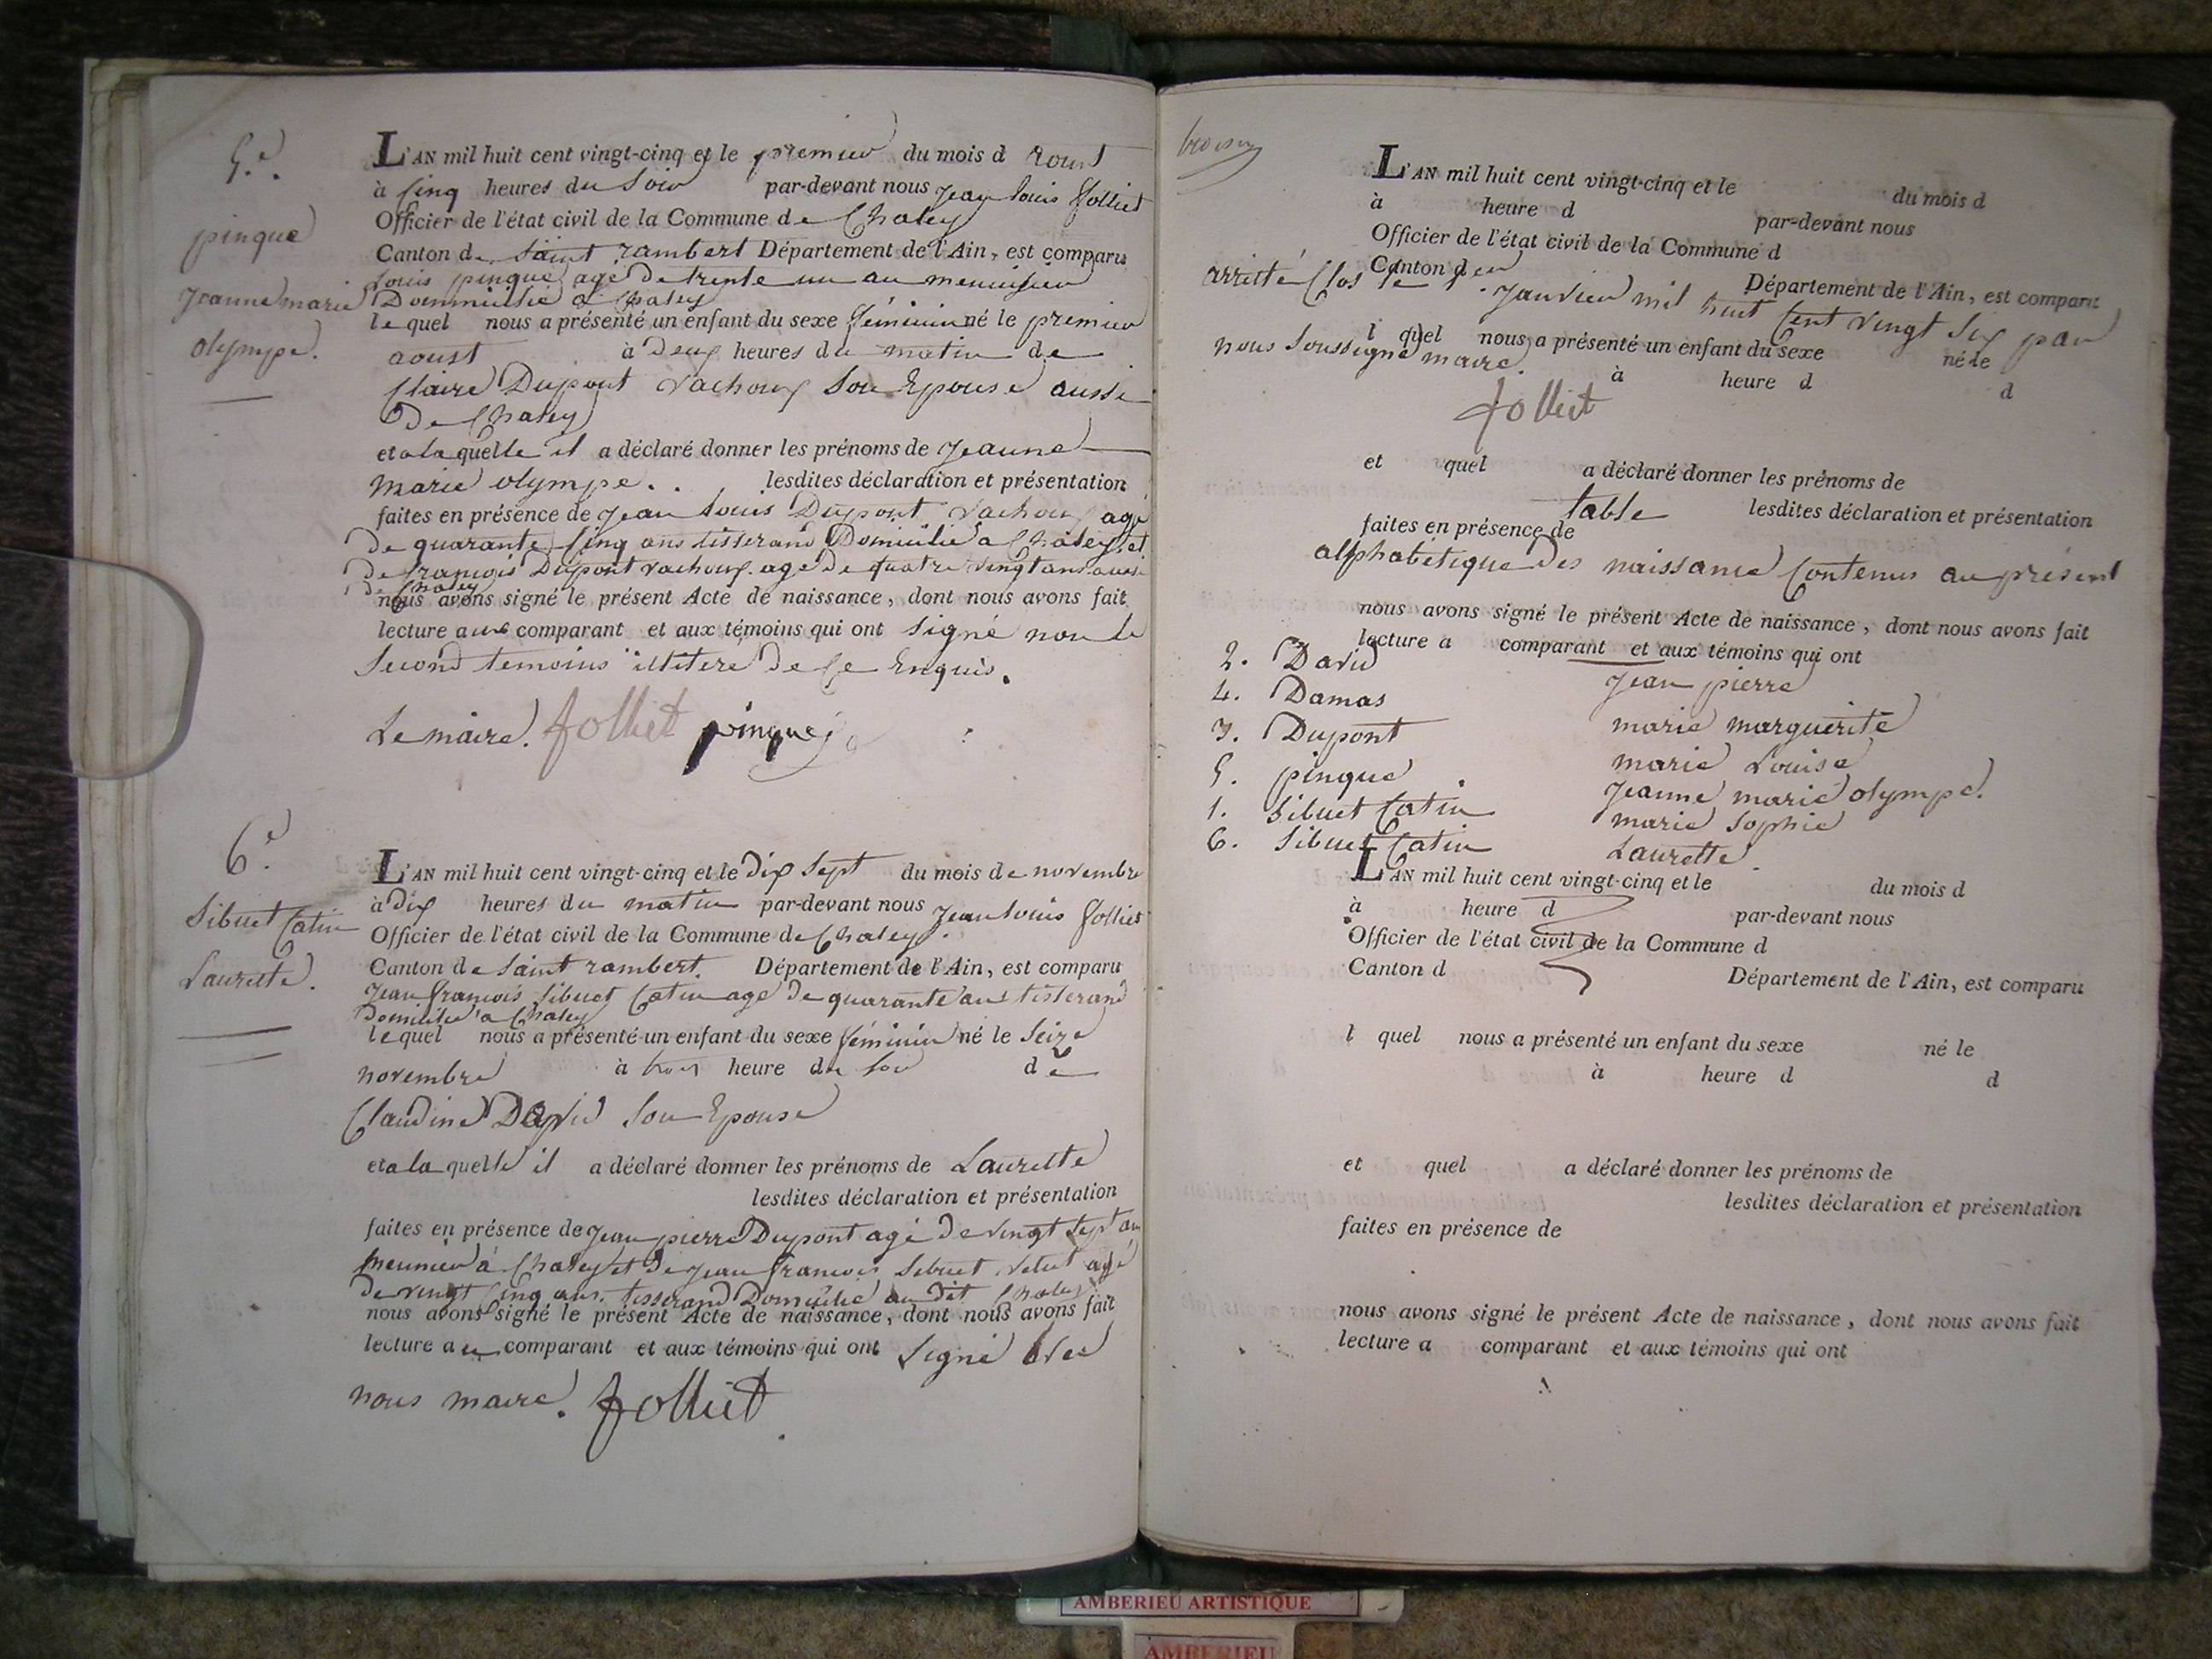 5.e
pinque
Jeanne marie
olympe.
L'AN mil huit cent vingt-cinq et le premier du mois d'aoust
à Cinq heures du Soir par-devant nous Jean louis folliet
Officier de l'état civil de la Commune de Chaley
Canton de Saint rambert Département de l'Ain, est comparu
Louis pinque agé de trente un an menuisier
Domicilie a Chaley
lequel nous a présenté un enfant du sexe féminin né le premier
aoust à deux heures du matin de
Claire Dupont vachoux Son Epouse aussi
De Chaley
et a laquelle il a déclaré donner les prénoms de Jeanne
Marie olympe. lesdites déclaration et présentation
faites en présence de Jean Louis Dupont vachoux agé
De quarante Cinq ans tisserand Domicilié a Chaley et
De francois Dupont vachoux age De quatre vingt ans aussi
De Chaley
nous avons signé le présent Acte de naissance, dont nous avons fait
lecture aux comparant et aux témoins qui ont Signé non le
Second temoins illitere De Ce Enquis.
Le maire. folliet pinque
6.e
Sibuet Catin
Laurette.
L'AN mil huit cent vingt-cinq et le dix Sept du mois de novembre
à Dix heures du matin par-devant nous Jean louis folliet
Officier de l'état civil de la Commune de Chaley.
Canton de Saint rambert. Département de l'Ain, est comparu
Jean francois Sibuet Catin age De quarante ans tisserand
Domicilié a Chaley
lequel nous a présenté un enfant du sexe féminin né le Seize
novembre à trois heure du Soir de
Claudine David Son Epouse
et a laquelle il a déclaré donner les prénoms de Laurette
lesdites déclaration et présentation
faites en présence de Jean pierre Dupont agé De vingt Sept an
meunier à Chaley et De Jean francois Sibuet agé
De vingt Cinq ans. tisserand Domicilié au dit Chaley
nous avons signé le présent Acte de naissance, dont nous avons fait
lecture au comparant et aux témoins qui ont Signé avec
nous maire. folliet
L'AN mil huit cent vingt-cinq et le du mois d
à heure d par-devant nous
Officier de l'état civil de la Commune d
Canton d Département de l'Ain, est comparu
arretté Clos le 1.er Janvier mil huit Cent vingt Six par
l quel nous a présenté un enfant du sexe né le
nous Soussigné maire.
à heure d d
folliet
et quel a déclaré donner les prénoms de
table lesdites déclaration et présentation
faites en présence de
alphabetique des naissance Contenus au présent
nous avons signé le présent Acte de naissance, dont nous avons fait
lecture a comparant et aux témoins qui ont
2. David Jean pierre
4. Damas marie marguerite
3. Dupont marie Louise
5. pinque Jeanne marie olympe.
1. Sibuet Catin marie Sophie
6. Sibuet Catin Laurette.
L'AN mil huit cent vingt-cinq et le du mois d
à heure d par-devant nous
Officier de l'état civil de la Commune d
Canton d Département de l'Ain, est comparu
l quel nous a présenté un enfant du sexe né le
à heure d d
et quel a déclaré donner les prénoms de
lesdites déclaration et présentation
faites en présence de
nous avons signé le présent Acte de naissance, dont nous avons fait
lecture a comparant et aux témoins qui ont
AMBERIEU ARTISTIQUE
AMBERIEU